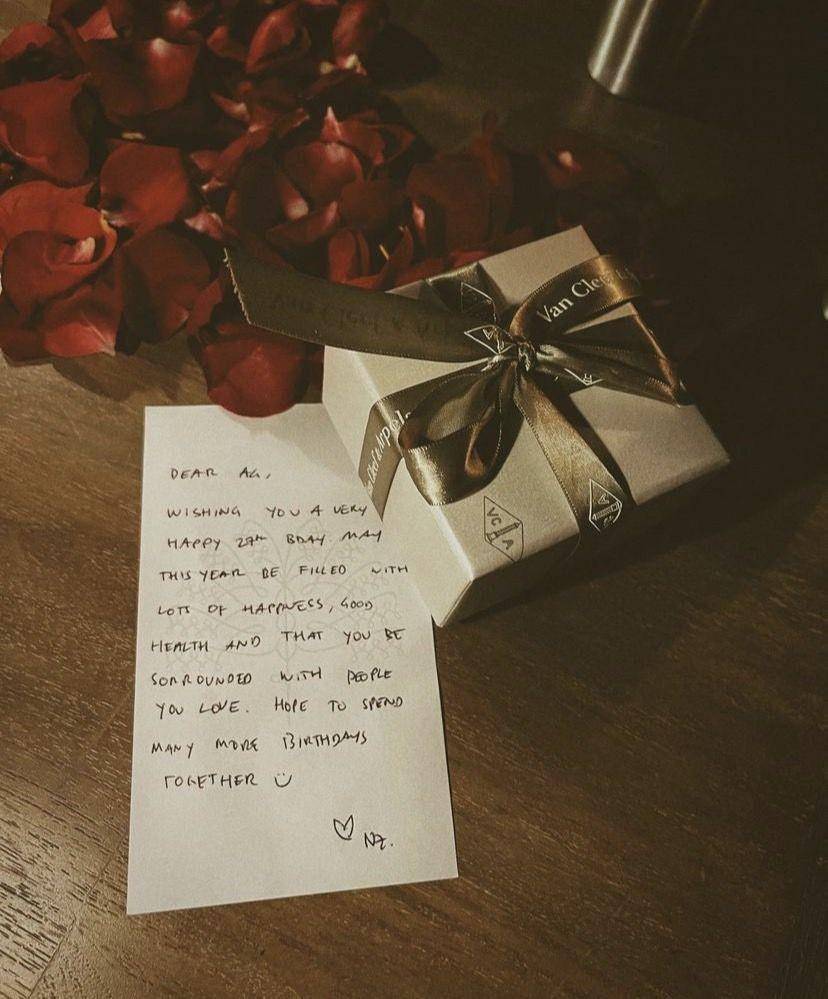 Van Cleef
Van Cleef & Ar
Van Cleef & Arpels
VC
A
DEAR AG,
WISHING YOU A VERY
HAPPY 29th BDAY. MAY
THIS YEAR BE FILLED WITH
LOTS OF HAPPINESS, GOOD
HEALTH AND THAT YOU BE
SORROUNDED WITH PEOPLE
YOU LOVE. HOPE TO SPEND
MANY MORE BIRTHDAYS
TOGETHER
NZ.